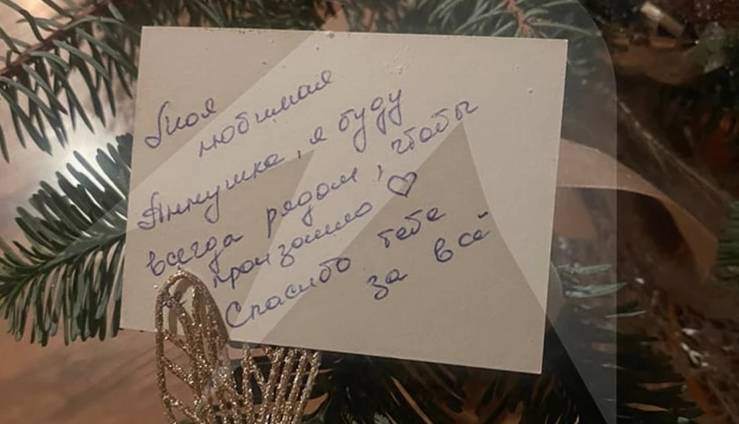 Моя
любимая
Аннушка, я буду
всегда рядом, чтобы
произошло ♡
Спасибо тебе
за всё